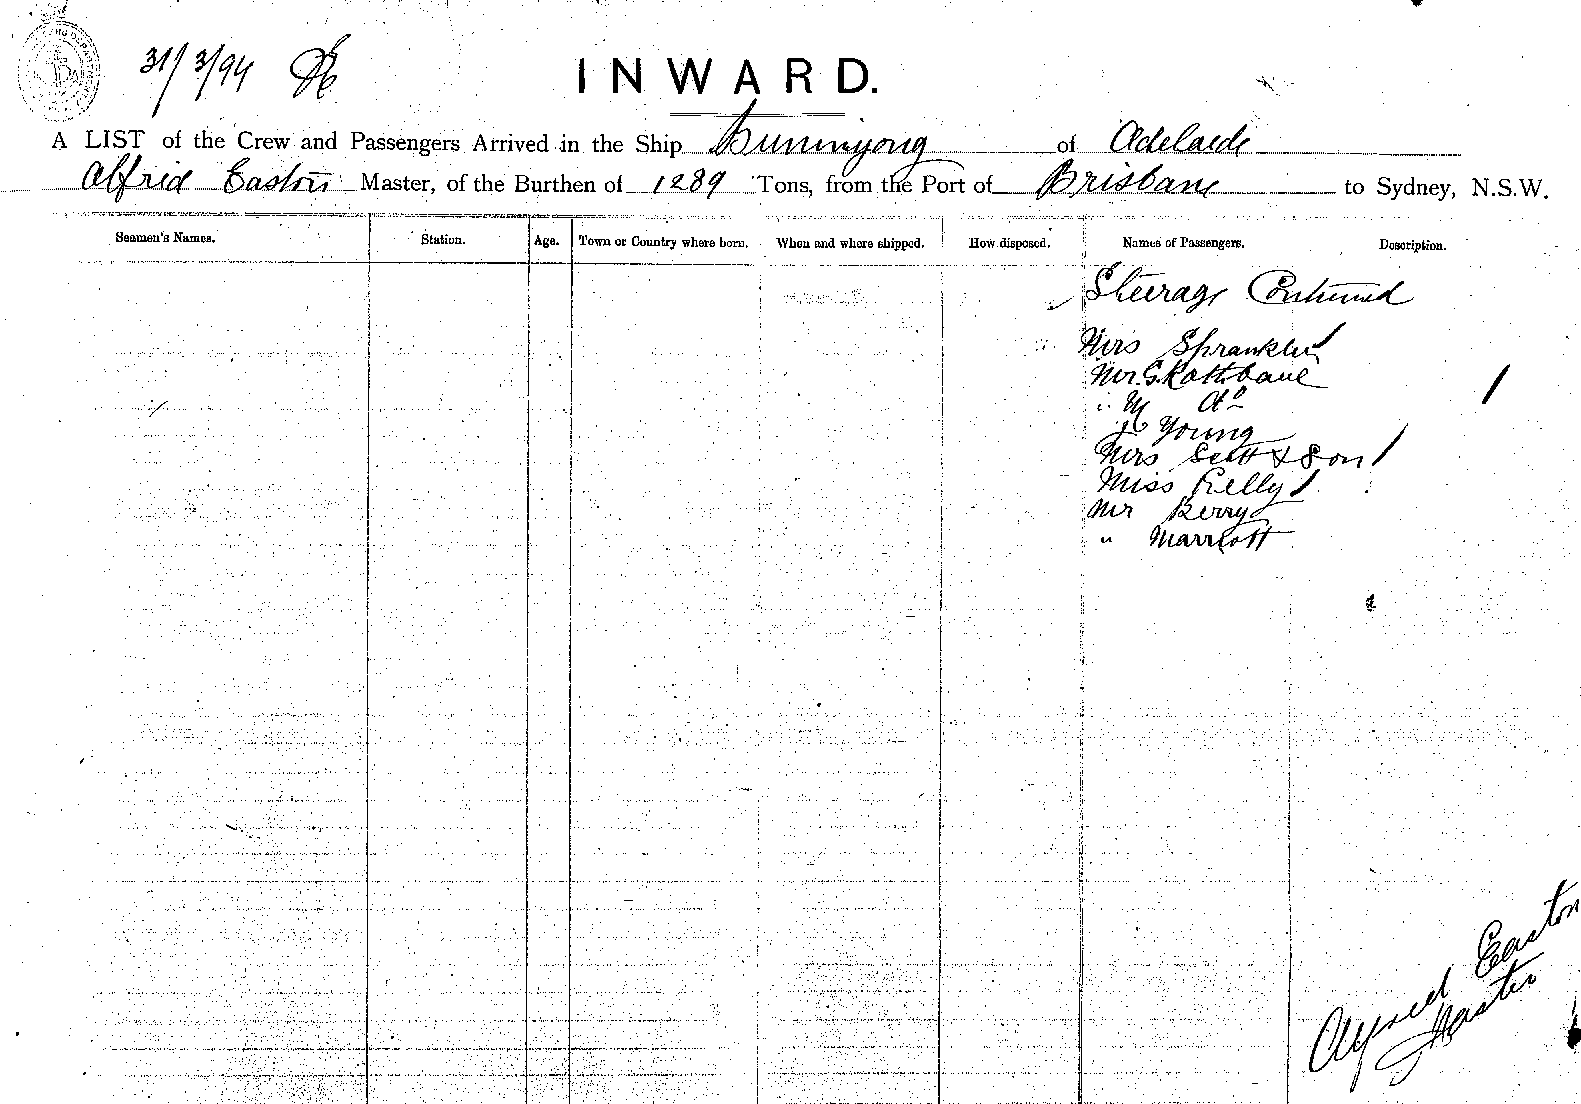 31/3/94
INWARD.
A LIST of the Crew and Passengers Arrived in the Ship Buninyong of Adelaide
Alfred Easton Master, of the Burthen of 1289 Tons, from the Port of Brisbane to Sydney, N.S.W.
Seamen's Names. Station. Age. Town or Country where born. When and where shipped. How disposed. Names of Passengers. Description.
Steerage Continued
Mrs Spranklin
Mr G. Rathbane
" M Do
Young
Mrs Scott & Son
Miss
Mr Berry
" Marriott
Alfred Easton
Master